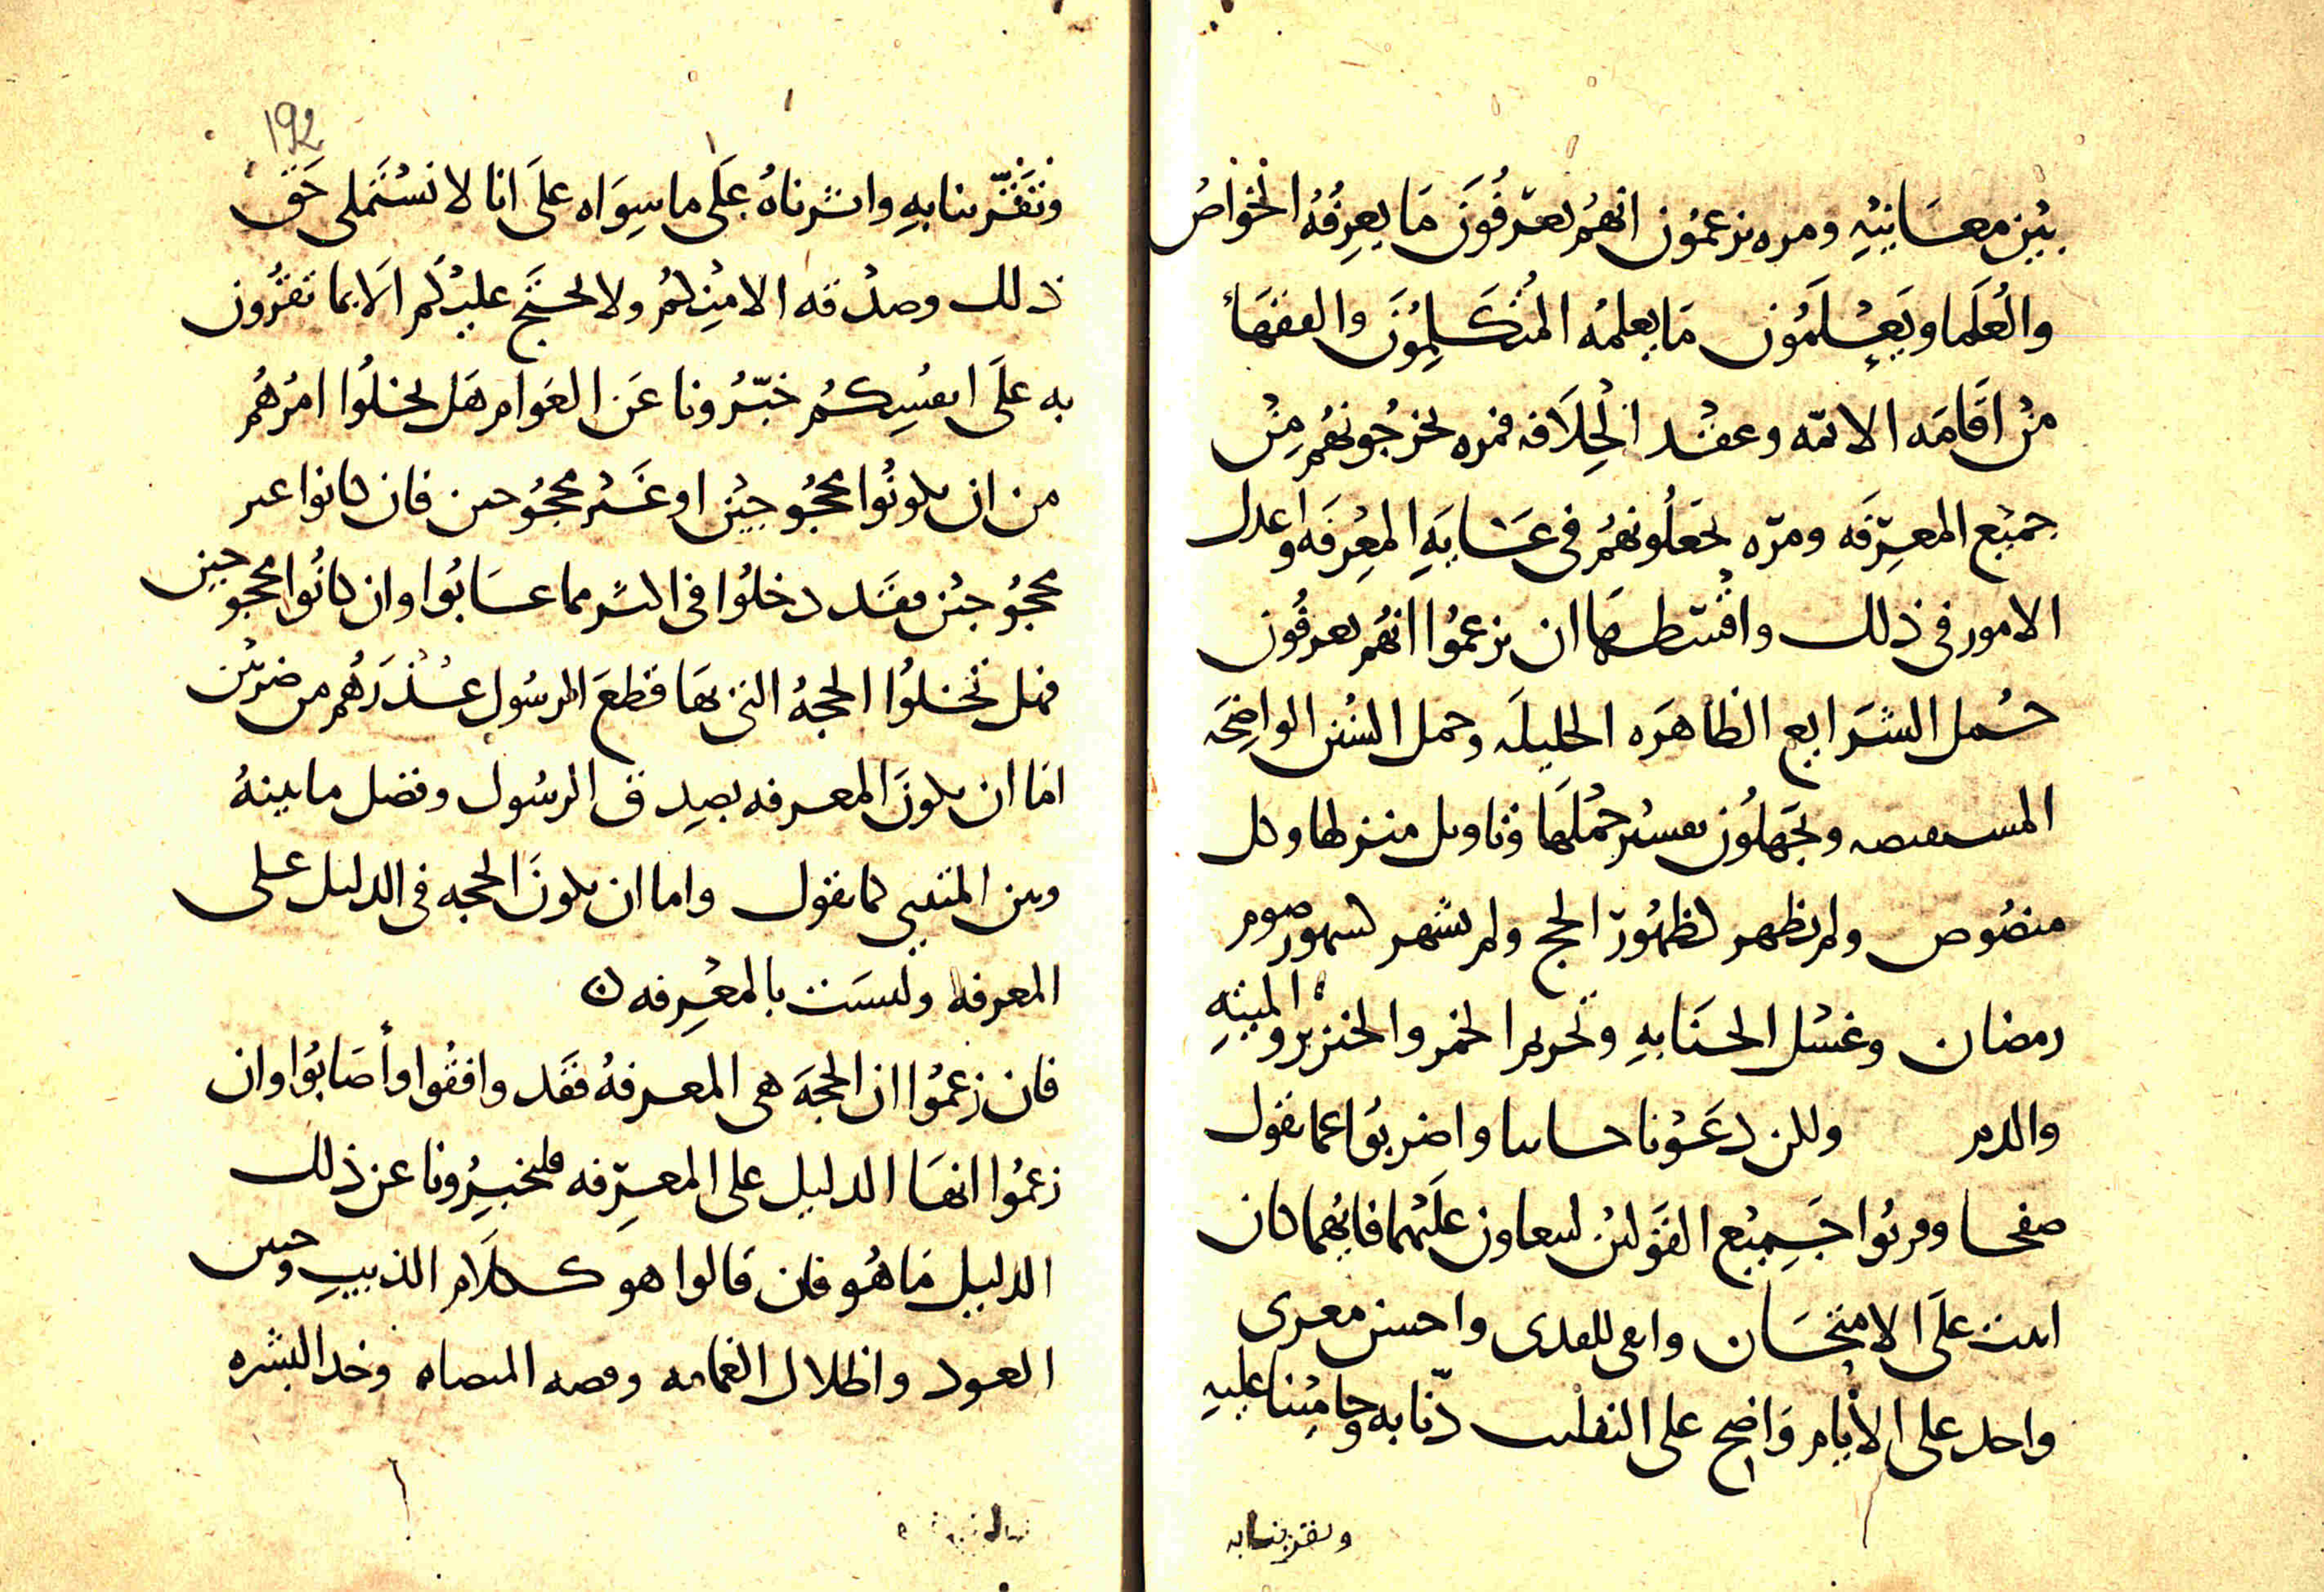 بين معانيه ومره يزعمون انهم يعرفون ما يعرفه الخواص
والعلما ويعلمون ما يعلمه المتكلمون والفقهاء
من اقامه الائمه وعقد الخلافه فمره يخرجونهم من
جميع المعرفه ومره يجعلونهم في غايه المعرفه واعدل
الامور في ذلك واقسطها ان يزعموا انهم يعرفون
جمل الشرايع الظاهره الجليله وجمل السنن الواضحه
المستفيضه ويجهلون تفسير جملها وتاويل منزلها وكل
منصوص ولم يظهر كظهور الحج ولم يشهر كشهور صوم
رمضان وغسل الجنابه وتحريم الخمر والخنزير والميته
والدم ولكن دعونا جانبا واضربوا عما نقول
صفحا جميع القولين عليهما فايهما كان
اثبت على الامتحان واحسن
على الايام واضح على التقليب دنا به وحامينا عليه
وتقربنا به
وتقربنا به واثرناه على ما سواه على انا لا نستملي حق
ذلك وصدقه الا منكم ولا نحتج عليكم الا بما تقرون
به على انفسكم خبرونا عن العوام هل يخلوا امرهم
من ان يكونوا محجوجين او غير محجوجين فان كانوا غير
محجوجين فقد دخلوا في اكثر مما عابوا وان كانوا محجوجين
فهل تخلوا الحجه التي بها قطع الرسول عذرهم من ضربين
اما ان يكون المعرفه بصدق الرسول وفصل ما بينه
وبين المتنبي كما نقول واما ان يكون الحجه في الدليل على
المعرفه وليست بالمعرفه ن
فان زعموا ان الحجه هي المعرفه فقد وافقوا وأصابوا وان
زعموا انها الدليل على المعرفه فليخبرونا عن ذلك
الدليل ما هو فان قالوا هو كلام الذيب وحنين
العود واظلال الغمامه وخد الشجره
١٩٢